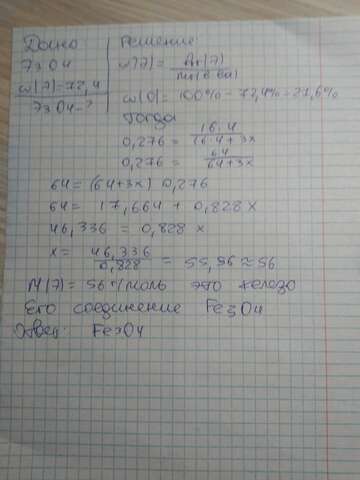 Дано
?3O4
ω(?)=72,4
?3O4-?
Решение
ω(?)= Ar(?) / Mr(в-ва)
ω(O)=100%-72,4%=27,6%
Тогда
0,276 = 16·4 / 16·4+3x
0,276 = 64 / 64+3x
64=(64+3x) 0,276
64= 17,664 + 0,828x
46,336 = 0,828x
x= 46,336 / 0,828 = 55,96≈56
M(?)=56 г/моль это железо
Его соединение Fe3O4
Ответ: Fe3O4